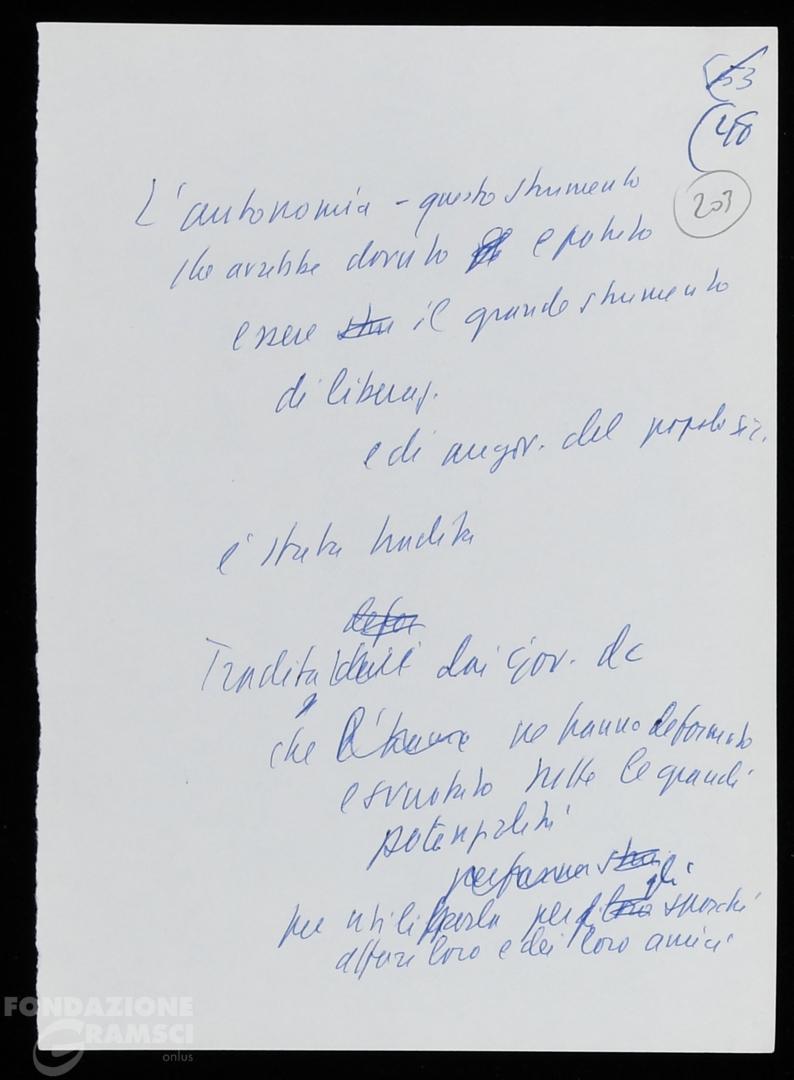 53
48
203
L'autonomia - questo strumento
che avrebbe dovuto e potuto
essere stru il grande strumento
di liberaz.
e di progr. del popolo sic.
è stata tradita
defor
Tradita dai gov. dc
che l'hanno ne hanno deformato
e svuotato tutte le grandi
potenzialità
per farne stru
per utilizzarla per gli loro sporchi
affari loro e dei loro amici
FONDAZIONE
GRAMSCI
onlus